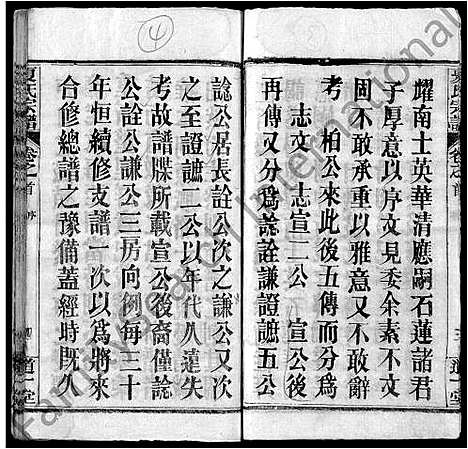 耀南士英華清應嗣石蓮諸君
子厚意以序文見委余素不文
固不敢承重以雅意又不敢辭
考 柏公來此後五傳而分為
志文 志宣二公 宣公後
再傳又分為諗詮謙證謶五公
三 道一堂
④
諗公居長詮公次之謙公又次
之至證謶二公以年代久遠失
考故譜牒所載宣公後裔僅諗
公詮公謙公三房向例每三十
年恒續修支譜一次以為將來
合修總譜之豫備蓋經時既久
夏氏宗譜 卷之首 序 四 道一堂